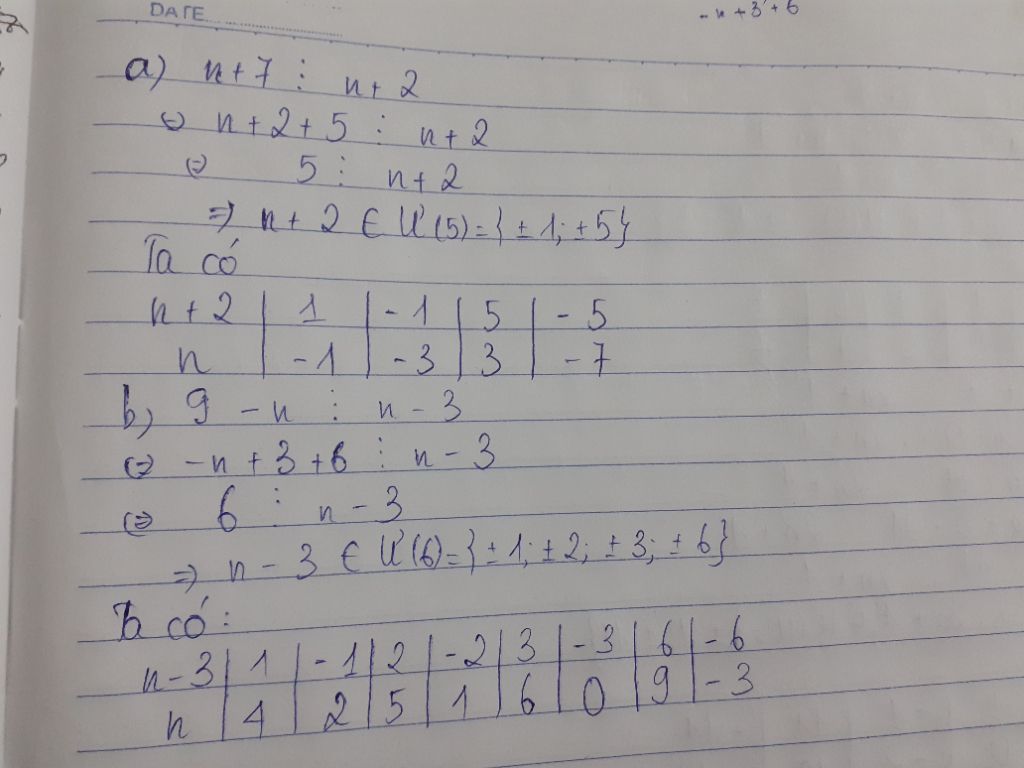 DATE
-n + 3 + 6
a) n+7 ⋮ n+2
⇔ n+2+5 ⋮ n+2
⇔ 5 ⋮ n+2
⇒ n+2 ∈ Ư(5)={±1; ±5}
Ta có
n+2 | 1 | -1 | 5 | -5
n | -1 | -3 | 3 | -7
b) 9 - n ⋮ n - 3
⇔ -n + 3 + 6 ⋮ n - 3
⇔ 6 ⋮ n - 3
⇒ n - 3 ∈ Ư(6)={±1; ±2; ±3; ±6}
Ta có:
n-3 | 1 | -1 | 2 | -2 | 3 | -3 | 6 | -6
n | 4 | 2 | 5 | 1 | 6 | 0 | 9 | -3